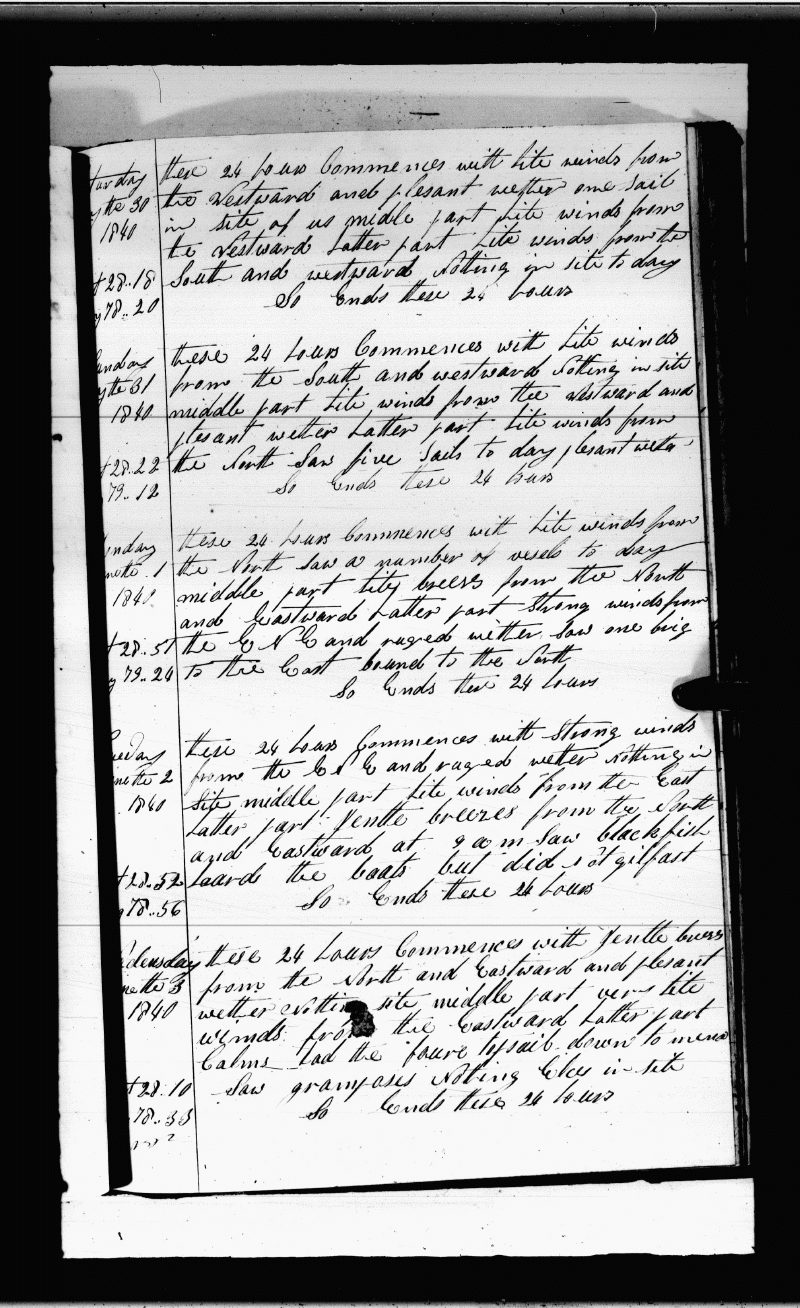 turday
y the 30
1840
t 28..18
g 78..20
these 24 hours Commences with lite winds from
the Westward and plesant wether one Sail
in site of us midle part lite winds from
the Westward Latter part Lite winds from the
South and westward Notting in site to day
So Ends these 24 hours
unday
y the 31
1840
t 28..22
79..12
these 24 hours Commences with Lite winds
from the South and westward Notting in site
middle part lite winds from the Westward and
plesant wether Latter part lite winds from
the North Saw five Sails to day plesant wether
So Ends these 24 hours
onday
ne the 1
1840
t 28..51
g 79..24
these 24 hours Commences with lite winds from
the North Saw a number of vesels to day
middle part lite breess from the North
and Eastward Latter part Strong winds from
the E N E and ruged wether Saw one brig
to the East bound to the North
So Ends these 24 hours
uesday
ne the 2
1840
t 28..52
g 78..56
these 24 hours Commences with Strong winds
from the E N E and ruged wether Notting in
Site middle part Lite winds from the East
Latter part Jentle breezes from the North
and Eastward at 9 a m Saw blackfish
Loard the boats but did not git fast
So Ends these 24 hours
ednesday
ne the 3
1840
t 28..10
78..33
these 24 hours Commences with Jentle breess
from the North and Eastward and plesant
wether Notting site middle part very lite
winds from the Eastward Latter part
Calms had the foure topsail down to mend
Saw grampases Notting Elces in site
So Ends these 24 hours